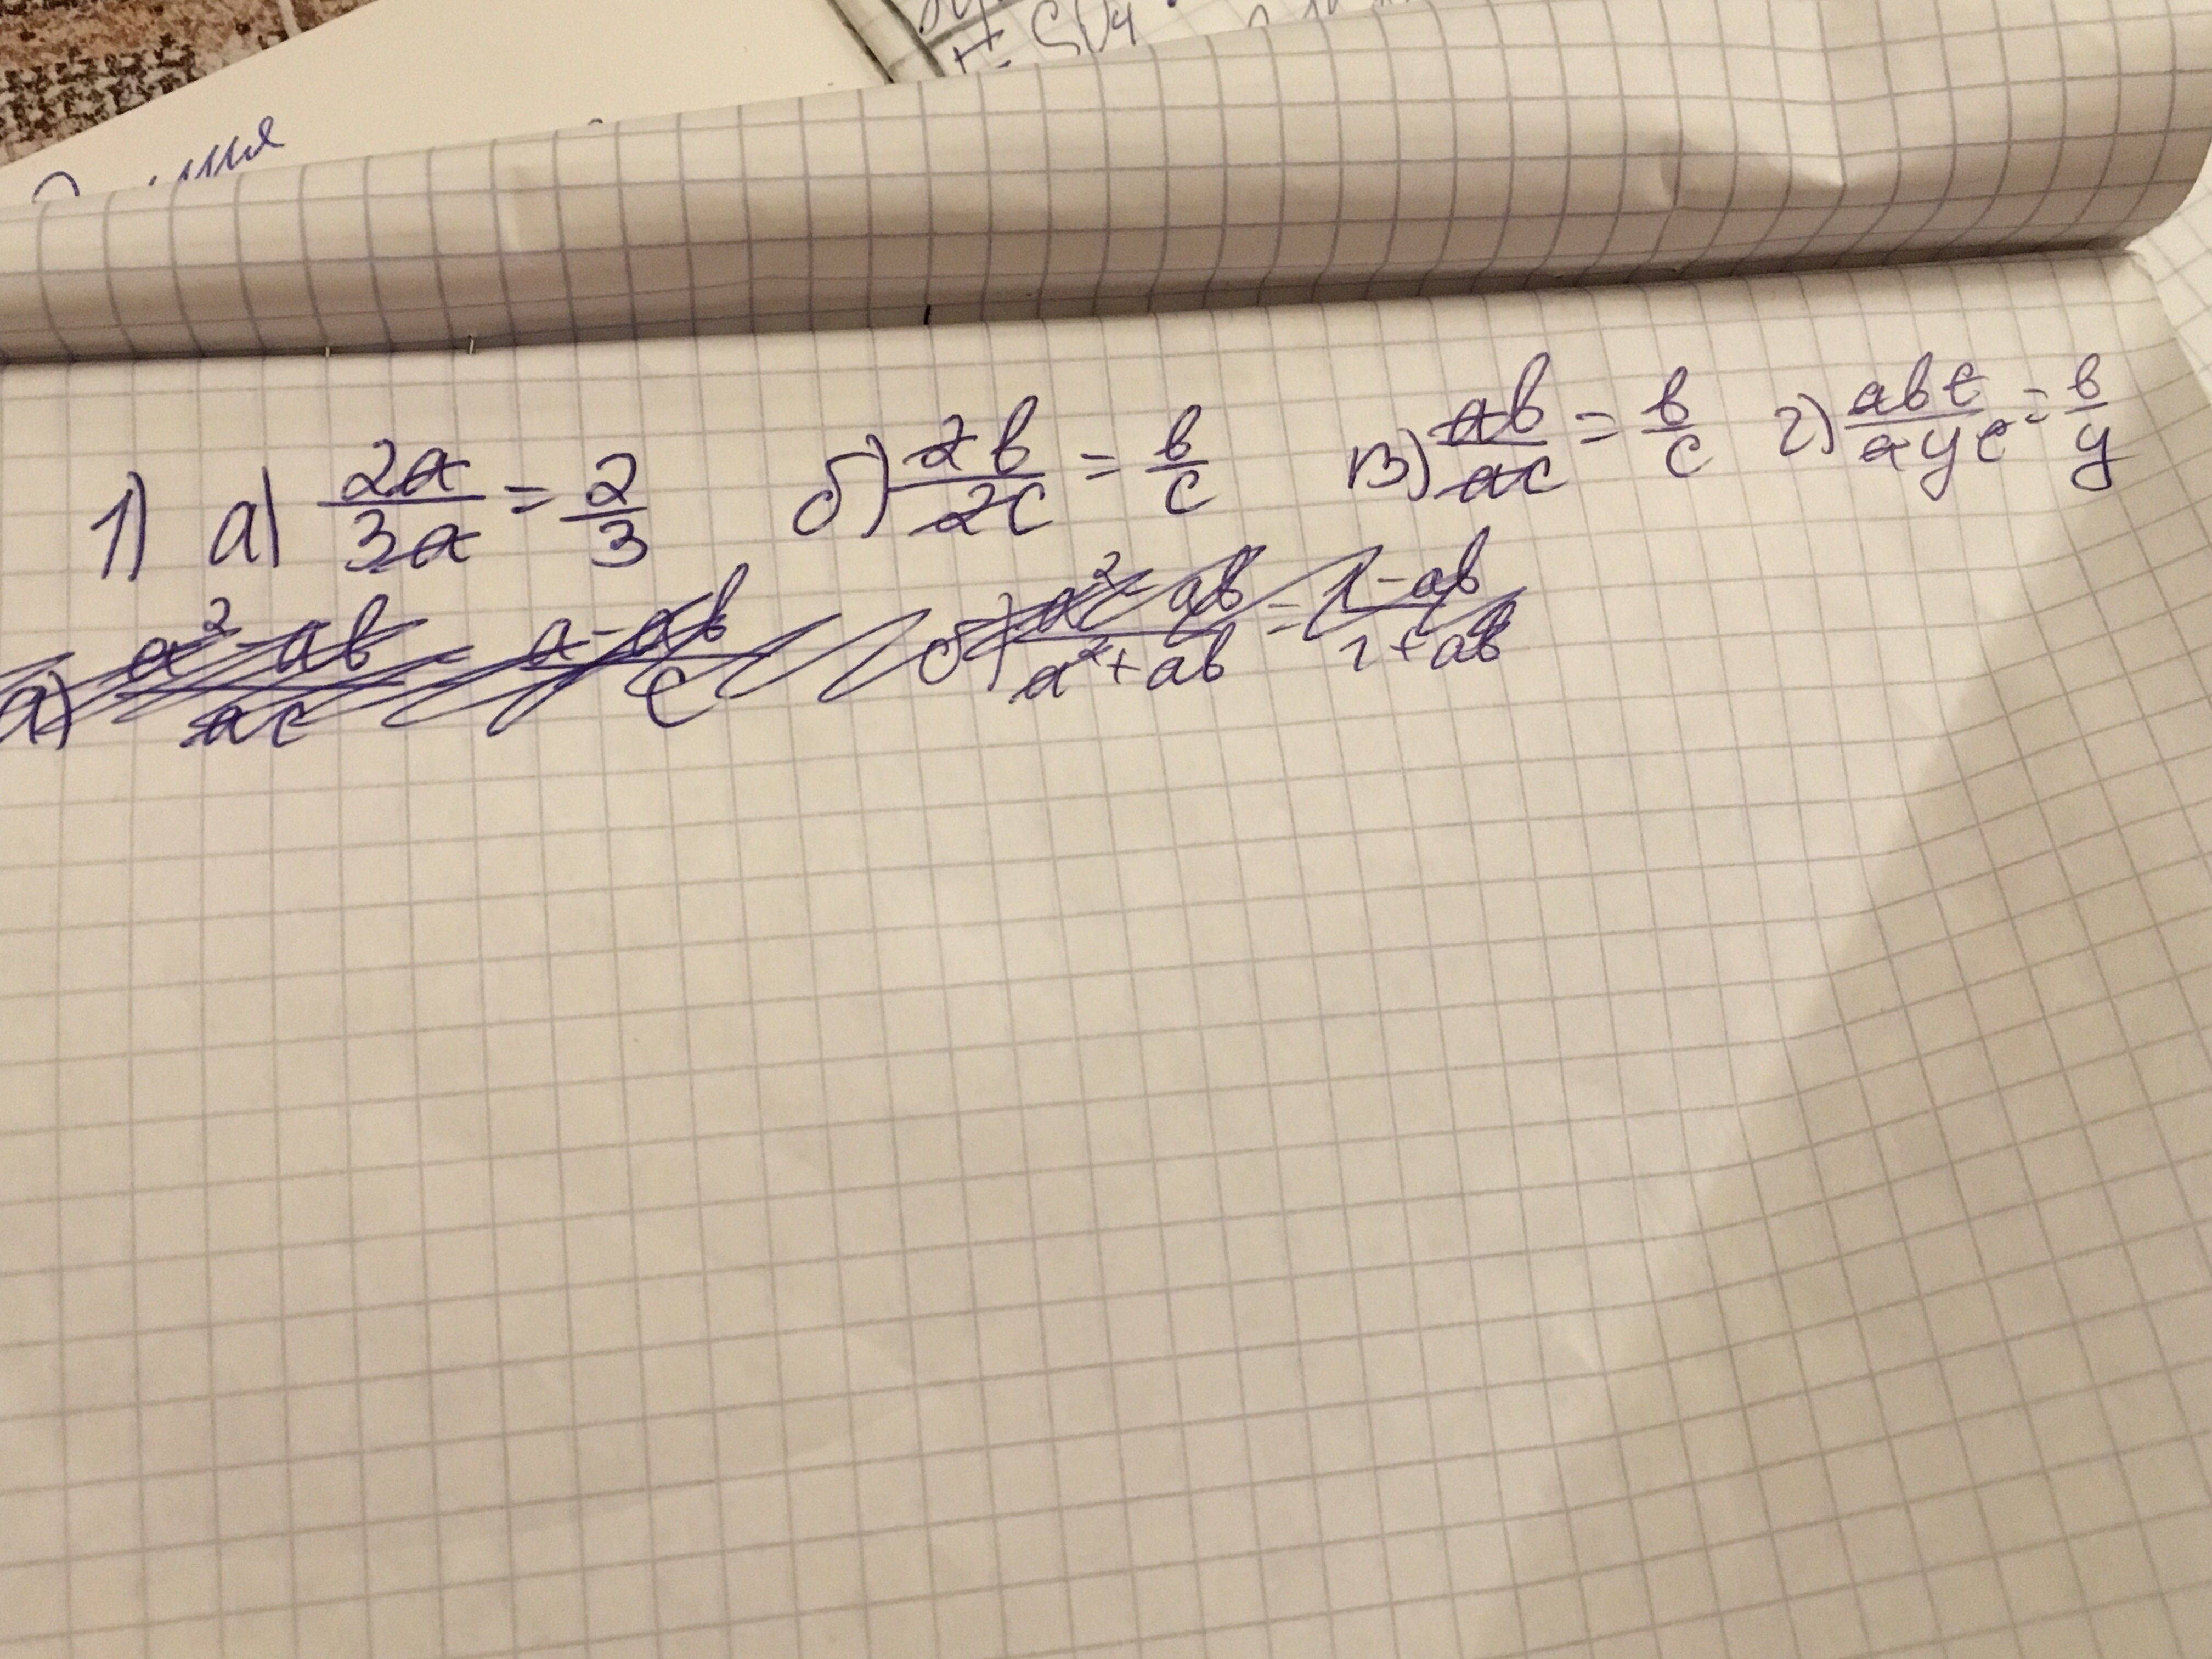 SO₄
1) а) 2a/3a = 2/3 б) 2b/2c = b/c в) ab/ac = b/c г) abc/ayc = b/y
а) a² - ab/ac = a - ab/c б) a² - ab/a² + ab = 1 - ab/1 + ab